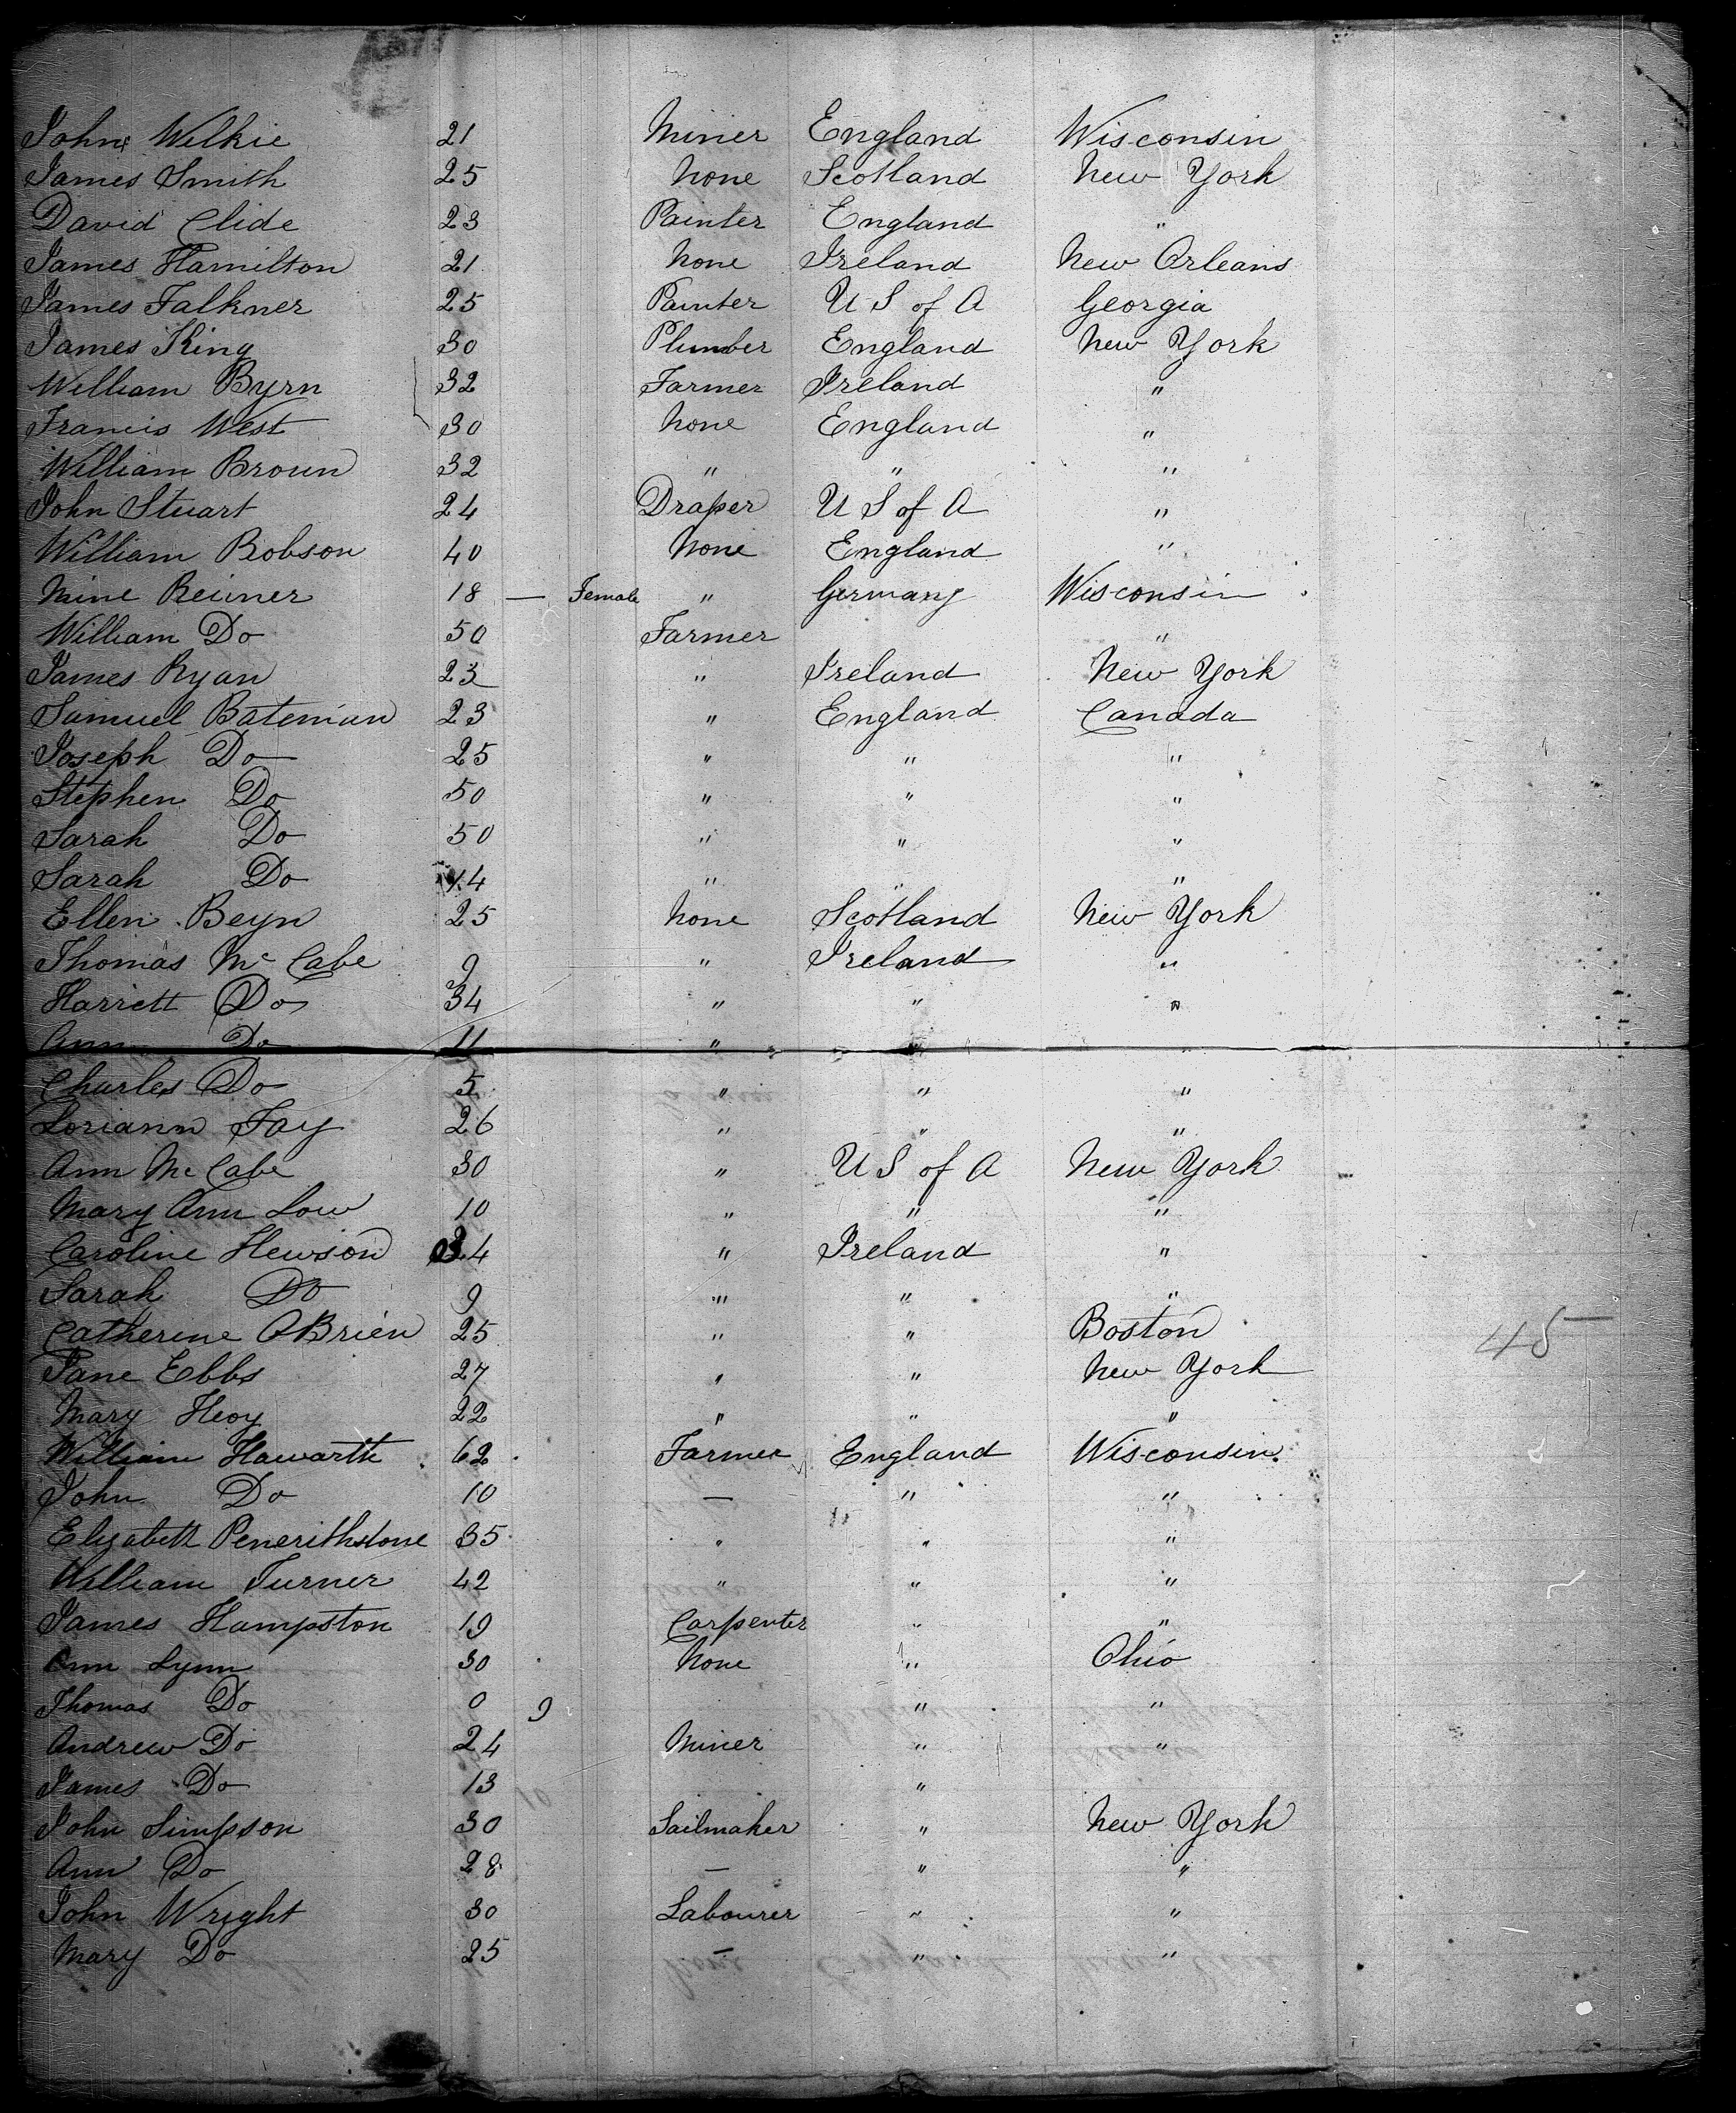 John Wilkie 21 Miner England Wisconsin
James Smith 25 None Scotland New York
David Clide 23 Painter England "
James Hamilton 21 None Ireland New Orleans
James Falkner 25 Painter U S of A Georgia
James King 30 Plumber England New York
William Byrn 32 Farmer Ireland "
Francis West 30 None England "
William Broun 32 " " "
John Stuart 24 Draper U S of A "
William Robson 40 None England "
Mine Reiner 18 — Female " Germany Wisconsin
William Do 50 Farmer "
James Ryan 23 " Ireland New York
Samuel Bateman 23 " England Canada
Joseph Do 25 " " "
Stephen Do 50 " " "
Sarah Do 50 " " "
Sarah Do 14 " " "
Ellen Beyn 25 None Scotland New York
Thomas Mc Cabe 9 " Ireland "
Harriett Do 34 " " "
Ann Do 11 " " "
Charles Do 5 " " "
Loriann Fay 26 " " "
Ann Mc Cabe 30 " U S of A New York
Mary Ann Low 10 " " "
Caroline Hewson 34 " Ireland "
Sarah Do 9 " " "
Catherine OBrien 25 " " Boston
Jane Ebbs 27 " " New York
45
Mary Heoy 22 " " "
William Hawarth 62 Farmer England Wisconsin
John Do 10 — " "
Elizabeth Penerithstone 35 " " "
William Turner 42 " " "
James Hampston 19 Carpenter " "
Ann Lynn 30 None " Ohio
Thomas Do 0 9 " "
Andrew Do 24 Miner " "
James Do 13 "
John Simpson 30 Sailmaker " New York
Ann Do 28 — " "
John Wright 30 Labourer " "
Mary Do 25 — " "